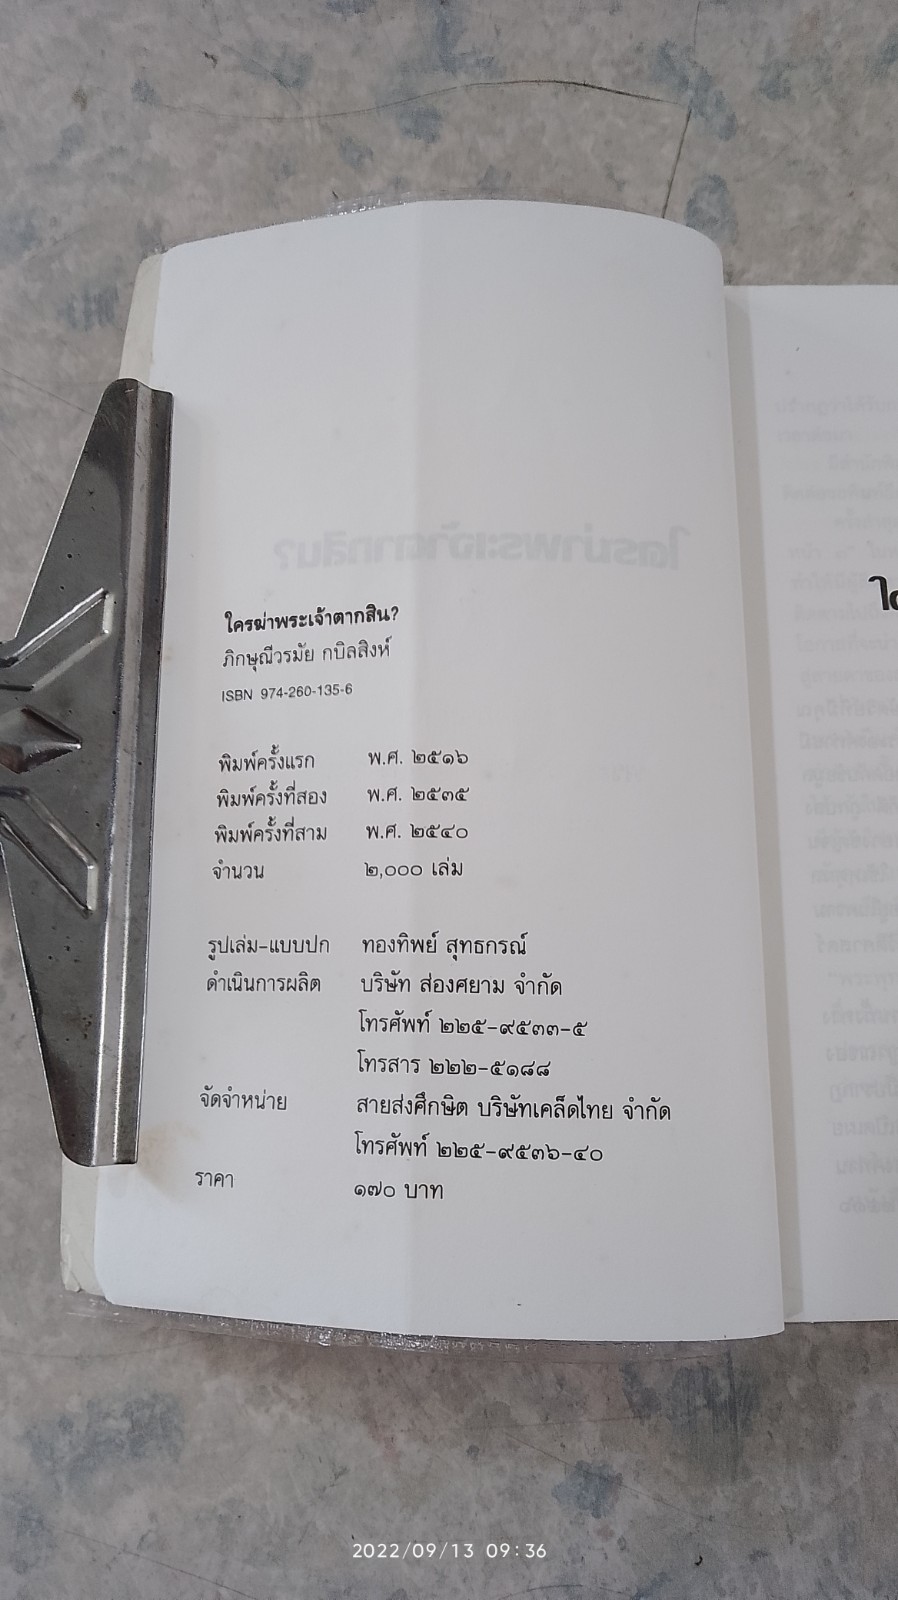 ใครฆ่าพระเจ้าตากสิน?
ภิกษุณีวรมัย กบิลสิงห์
ISBN 974-260-135-6
พิมพ์ครั้งแรก พ.ศ. ๒๕๑๖
พิมพ์ครั้งที่สอง พ.ศ. ๒๕๓๕
พิมพ์ครั้งที่สาม พ.ศ. ๒๕๔๐
จำนวน ๒,๐๐๐ เล่ม
รูปเล่ม-แบบปก ทองทิพย์ สุทธกรณ์
ดำเนินการผลิต บริษัท ส่องศยาม จำกัด
โทรศัพท์ ๒๒๕-๙๕๓๓-๕
โทรสาร ๒๒๒-๕๑๘๘
จัดจำหน่าย สายส่งศึกษิต บริษัทเคล็ดไทย จำกัด
โทรศัพท์ ๒๒๕-๙๕๓๖-๔๐
ราคา ๑๗๐ บาท
2022/09/13 09:36